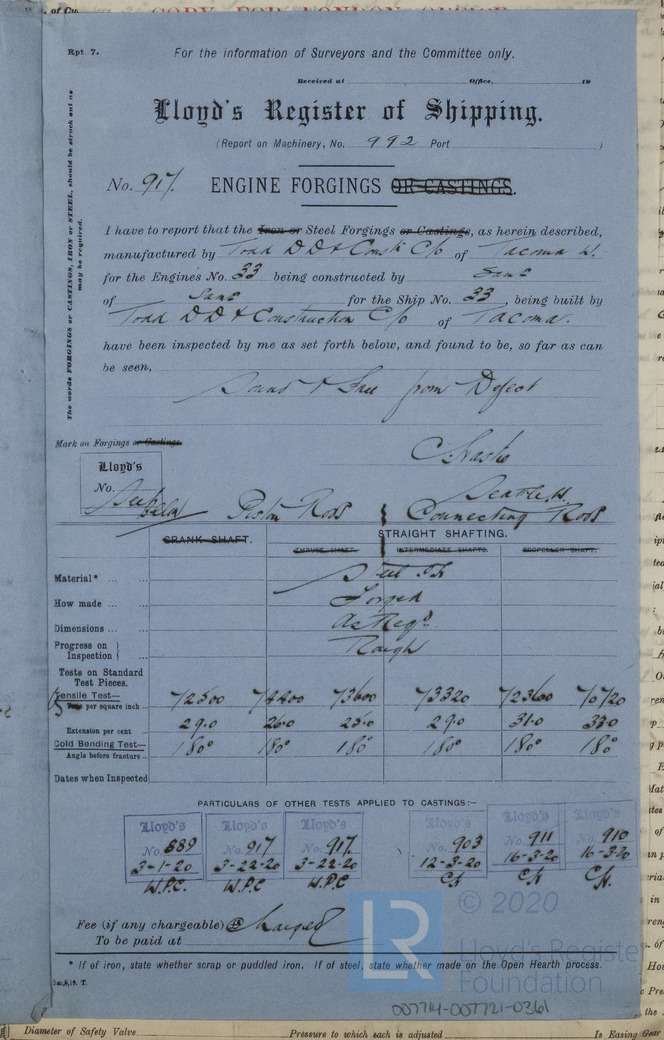 COPY FOR LONDON OFFICE
Rpt. 7.
For the information of Surveyors and the Committee only.
Received at Office, 19
Lloyd's Register of Shipping.
(Report on Machinery, No. 992 Port )
No. 917. ENGINE FORGINGS OR CASTINGS.
The words FORGINGS or CASTINGS, IRON or STEEL, should be struck out as
may be required.
I have to report that the Iron or Steel Forgings or Castings, as herein described,
manufactured by Todd DD & Const Co of Tacoma W.
for the Engines No. 33 being constructed by Same
of Same for the Ship No. 33, being built by
Todd DD & Construction Co of Tacoma.
have been inspected by me as set forth below, and found to be, so far as can
be seen,
Sound & Free from Defect
Mark on Forgings or Castings.
Lloyd's
No.
Seattle W.
Piston Rods Connecting Rods
CRANK SHAFT. STRAIGHT SHAFTING.
THRUST SHAFT. INTERMEDIATE SHAFTS. PROPELLER SHAFT.
Material* ... ... Steel
How made ... ... Forged
Dimensions ... ... As Reqd.
Progress on
Inspection } Rough
Tests on Standard
Test Pieces.
Tensile Test—
per square inch ... 72500 74400 73600 73320 72360 70720
Extension per cent 29.0 26.0 25.0 29.0 31.0 33.0
Cold Bending Test—
Angle before fracture... 180° 180° 180° 180° 180° 180°
Dates when Inspected
PARTICULARS OF OTHER TESTS APPLIED TO CASTINGS:—
Lloyd's Lloyd's Lloyd's Lloyd's Lloyd's Lloyd's
No. 889 No. 917 No. 917 No. 903 No. 911 No. 910
3-1-20 3-22-20 3-22-20 12-3-20 16-3-20 16-3-20
W.P.C. W.P.C W.P.C CN CN CN.
Fee (if any chargeable) Charged
To be paid at
* If of iron, state whether scrap or puddled iron. If of steel, state whether made on the Open Hearth process.
© 2020
LR
Lloyd's Register
Foundation
007714-007721-0361
Diameter of Safety Valve Pressure to which each is adjusted Is Easing Gear